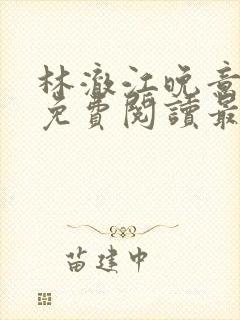 林澈江晚音
免費閱讀最
苗建中